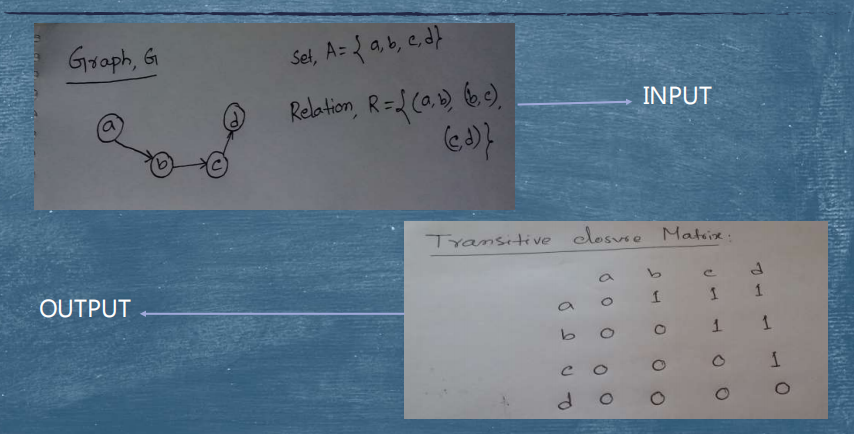 Graph, G
Set, A = { a, b, c, d}
Relation, R = { (a, b), (b, c),
(c, d)}
a
b
c
d
INPUT
Transitive closure Matrix:
a b c d
a 0 1 1 1
b 0 0 1 1
c 0 0 0 1
d 0 0 0 0
OUTPUT